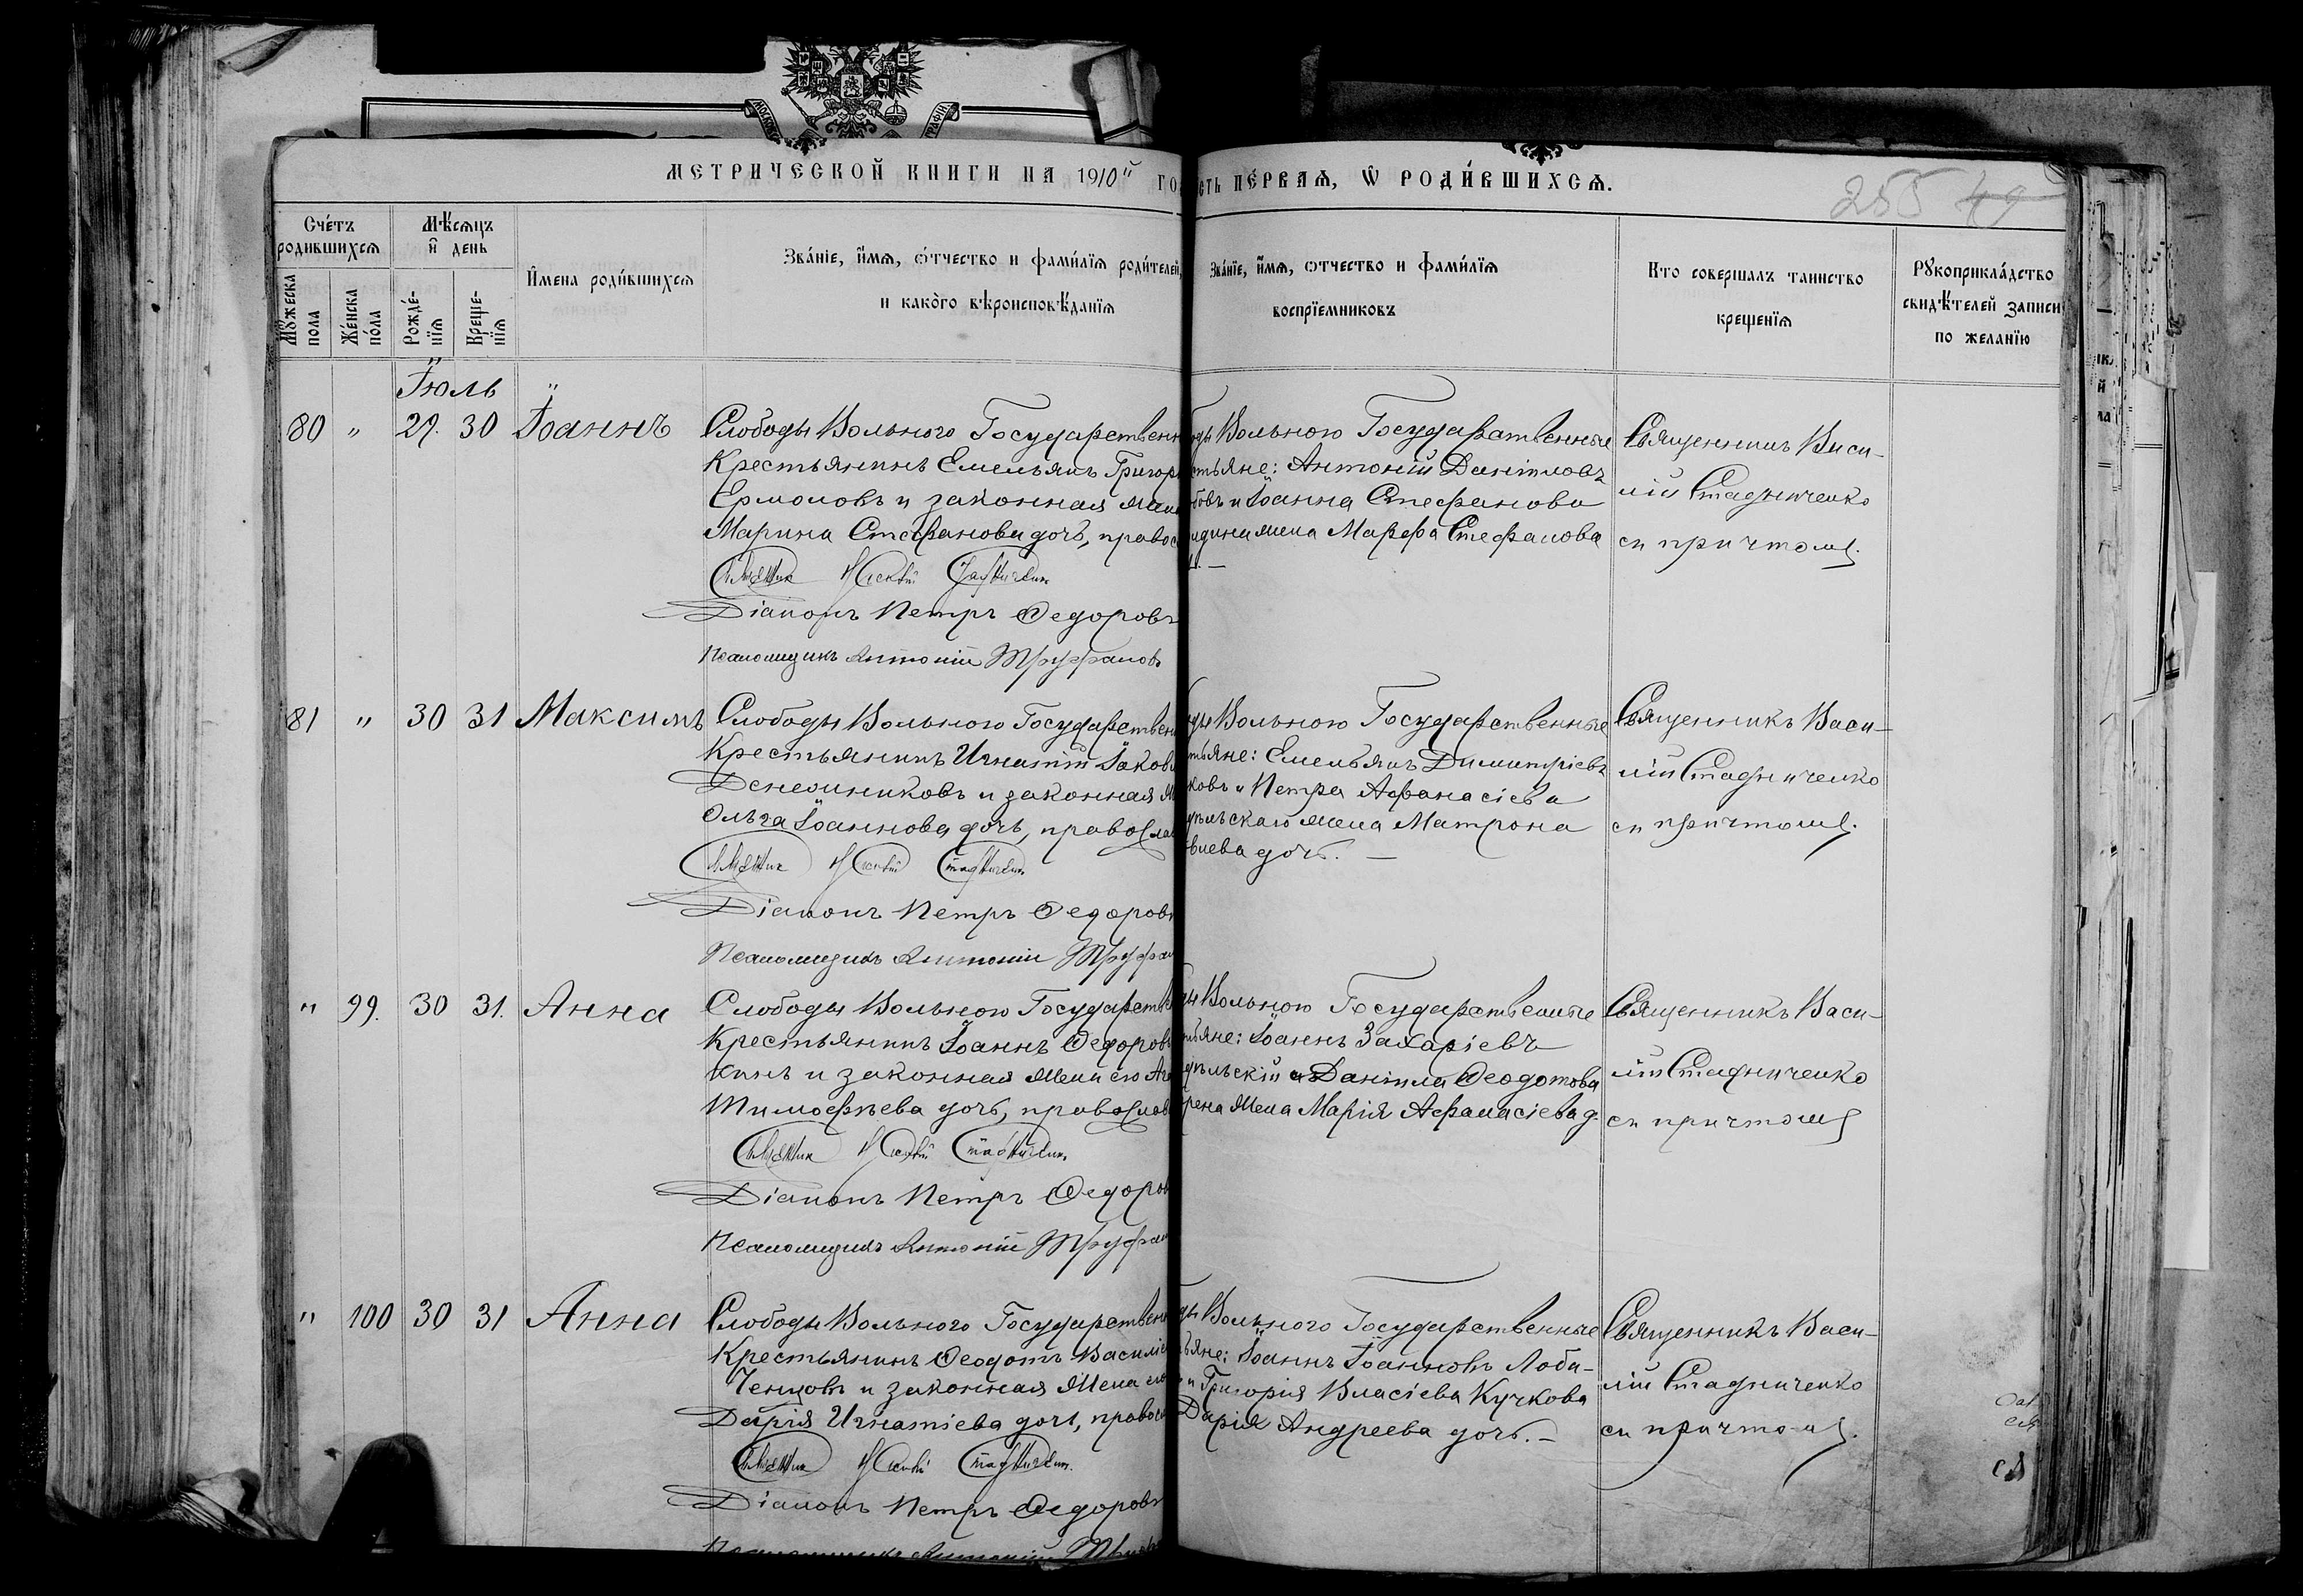 МЕТРИЧЕСКОЙ КНИГИ НА 1910й ГО
СТЬ ПЕ́РВАѦ, Ѡ РОДИ́ВШИХСѦ.
255 49
Сче́тъ родившихсѧ
Мꙋ́жеска пола
Же́нска по́ла
Мѣ́сѧцъ и҆ день
Рожде́-нїѧ
Креще-нїѧ
И҆мена роди́вшихсѧ
Зва́нїе, и҆́мѧ, ѻ҆́тчество и фами́лїѧ роди́телей,
и како́го вѣроисповѣ́данїѧ
Зва́нїе, и҆́мѧ, ѻтчество и фами́лїѧ
воспрїемниковъ
Кто совершалъ таинство
крещенїѧ
Рꙋкоприкла́дство
свидѣ́телей записи
по желанїю
Іюль
80 " 29. 30 Іоаннъ
Слободы Вольного Государственн
Крестьянинъ Емельянъ Григорь
Ермоловъ и законная жена
Марина Стефанова дочь, правос
Діаконъ Петръ Ѳедоровъ
Псаломщикъ Антоній Труфановъ
оды Вольного Государственные
стьяне: Антоній Даніиловъ
бовъ и Іоанна Стефанова
жена Марѳа Стефанова
Священникъ Васи-
лій Стадниченко
съ причтомъ.
81 " 30 31 Максимъ
Слободы Вольного Государствен
Крестьянинъ Игнатій Іаковл
Денежниковъ и законная ж
Ольга Іоаннова дочь, православ
Діаконъ Петръ Ѳедоровъ
Псаломщикъ Антоній Труфан
ды Вольного Государственные
тьяне: Емельянъ Димитріевъ
ковъ и Петра Аѳанасіева
дѣльскаго жена Матрона
виева дочь. —
Священникъ Васи-
лій Стадниченко
съ причтомъ.
" 99. 30 31. Анна
Слободы Вольного Государств
Крестьянинъ Іоаннъ Ѳедоров
кинъ и законная жена его
Тимоѳѣева дочь, православ
Діаконъ Петръ Ѳедоров
Псаломщикъ Антоній Труфан
ды Вольного Государственные
тьяне: Іоаннъ Захаріевъ
дѣльскій и Даніила Ѳеодотова
жена Марія Аѳанасіева д.
Священникъ Васи-
лій Стадниченко
съ причтомъ
" 100 30 31 Анна
Слободы Вольного Государствен
Крестьянинъ Ѳеодотъ Василіе
Ченцовъ и законная жена его
Дарія Игнатіева дочь, правосл
Діаконъ Петръ Ѳедоровъ
ды Вольного Государственные
ьяне: Іоаннъ Іоанновъ Лоба-
и Григорія Власіева Кучкова
Дарія Андреева дочь. —
Священникъ Васи-
лій Стадниченко
съ причтомъ.